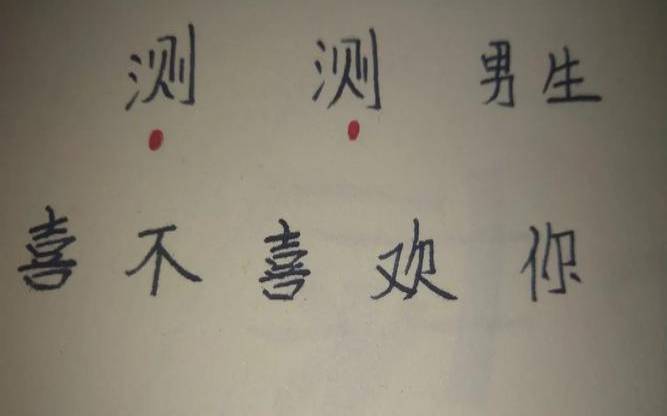 测测男生
喜不喜欢你